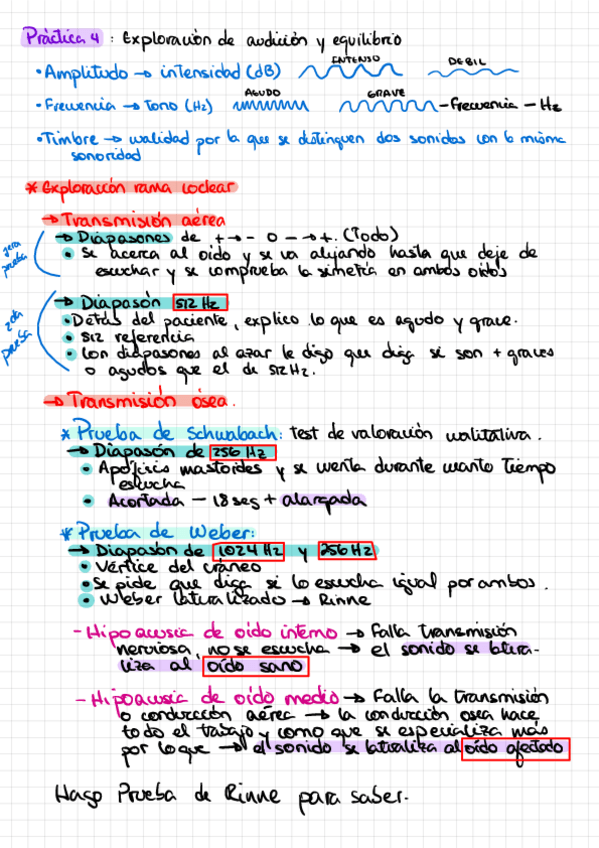 Práctica 4 : Exploración de audición y equilibrio
• Amplitudo → intensidad (dB) INTENSO DEBIL
• Frecuencia → tono (Hz) AGUDO GRAVE - Frecuencia - Hz
• Timbre → cualidad por la que se distinguen dos sonidos con la misma
sonoridad
* Exploración rama coclear
→ Transmisión aérea
1era prueba
→ Diapasones de + → - o - → +. (Todo)
• Se acerca al oído y se va alejando hasta que deje de
escuchar y se comprueba la simetría en ambos oídos
2da prueba
→ Diapasón 512 Hz
• Detrás del paciente, explico lo que es agudo y grave.
• 512 referencia
• Con diapasones al azar le digo que diga si son + graves
o agudos que el de 512 Hz.
→ Transmisión ósea.
* Prueba de Schwabach: test de valoración cualitativa.
→ Diapasón de 256 Hz
• Apófisis mastoides y se cuenta durante cuanto tiempo
escucha
• Acortada - 18 seg + alargada
* Prueba de Weber:
→ Diapasón de 1024 Hz y 256 Hz
• Vértice del cráneo
• Se pide que diga si lo escucha igual por ambos.
• Weber lateralizado → Rinne
- Hipoacusia de oído interno → Falla transmisión
nerviosa, no se escucha → el sonido se latera-
liza al oído sano
- Hipoacusia de oído medio → Falla la transmisión
o conducción aérea → la conducción osea hace
todo el trabajo y como que se especializa más
por lo que → el sonido se lateraliza al oído afectado
Hago Prueba de Rinne para saber.